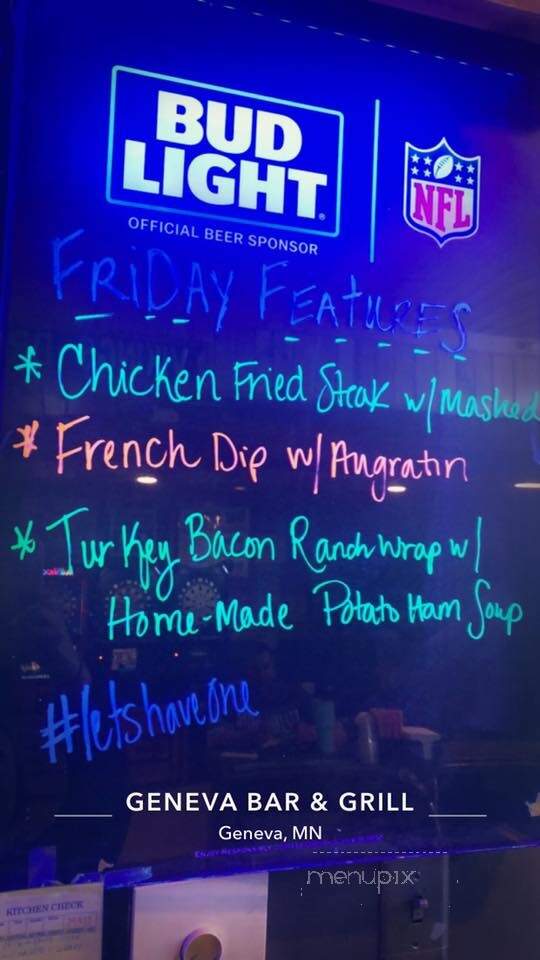 BUD
LIGHT
OFFICIAL BEER SPONSOR
NFL
FRIDAY FEATURES
* Chicken Fried Steak w/ Mashed
* French Dip w/ Augratin
* Turkey Bacon Ranch Wrap w/
Home-Made Potato Ham Soup
#letshaveone
GENEVA BAR & GRILL
Geneva, MN
menupix
KITCHEN CHECK